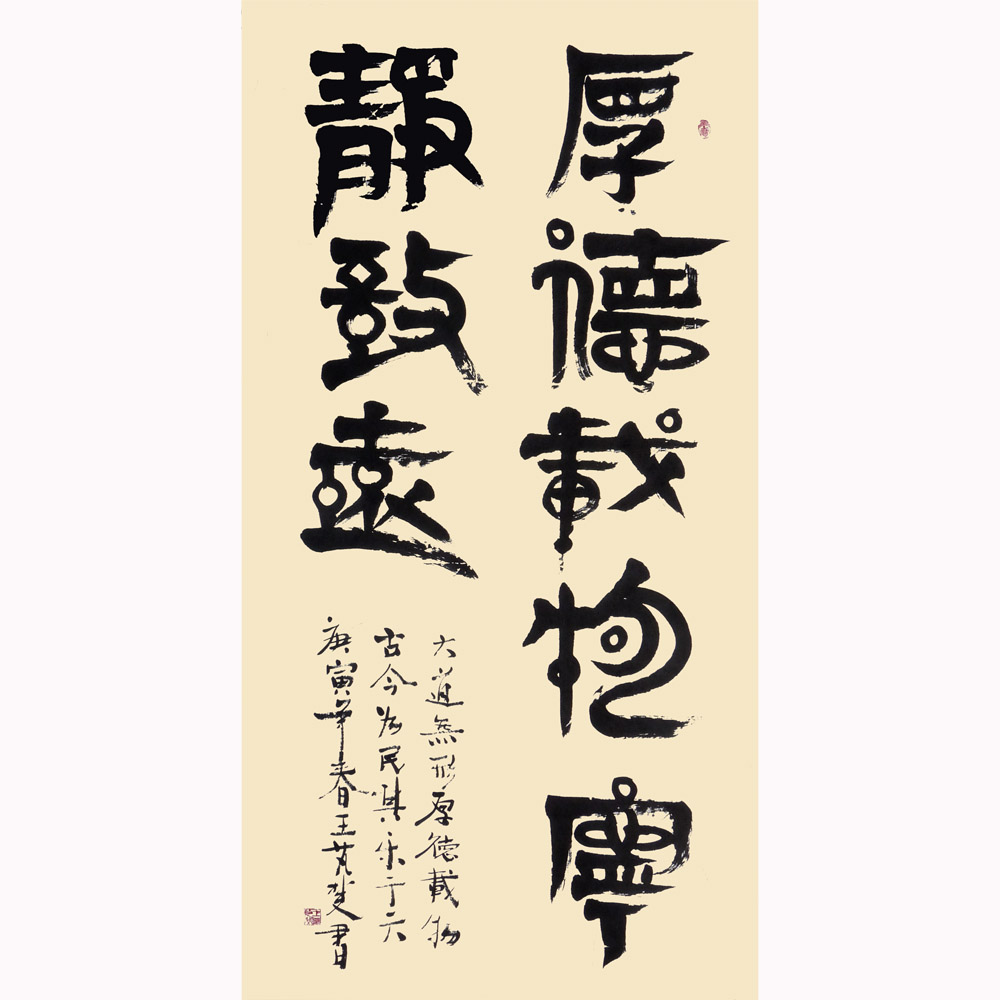 厚德載物寧
靜致遠
大道無形厚德載物
古今為民其樂于天
庚寅年春王書